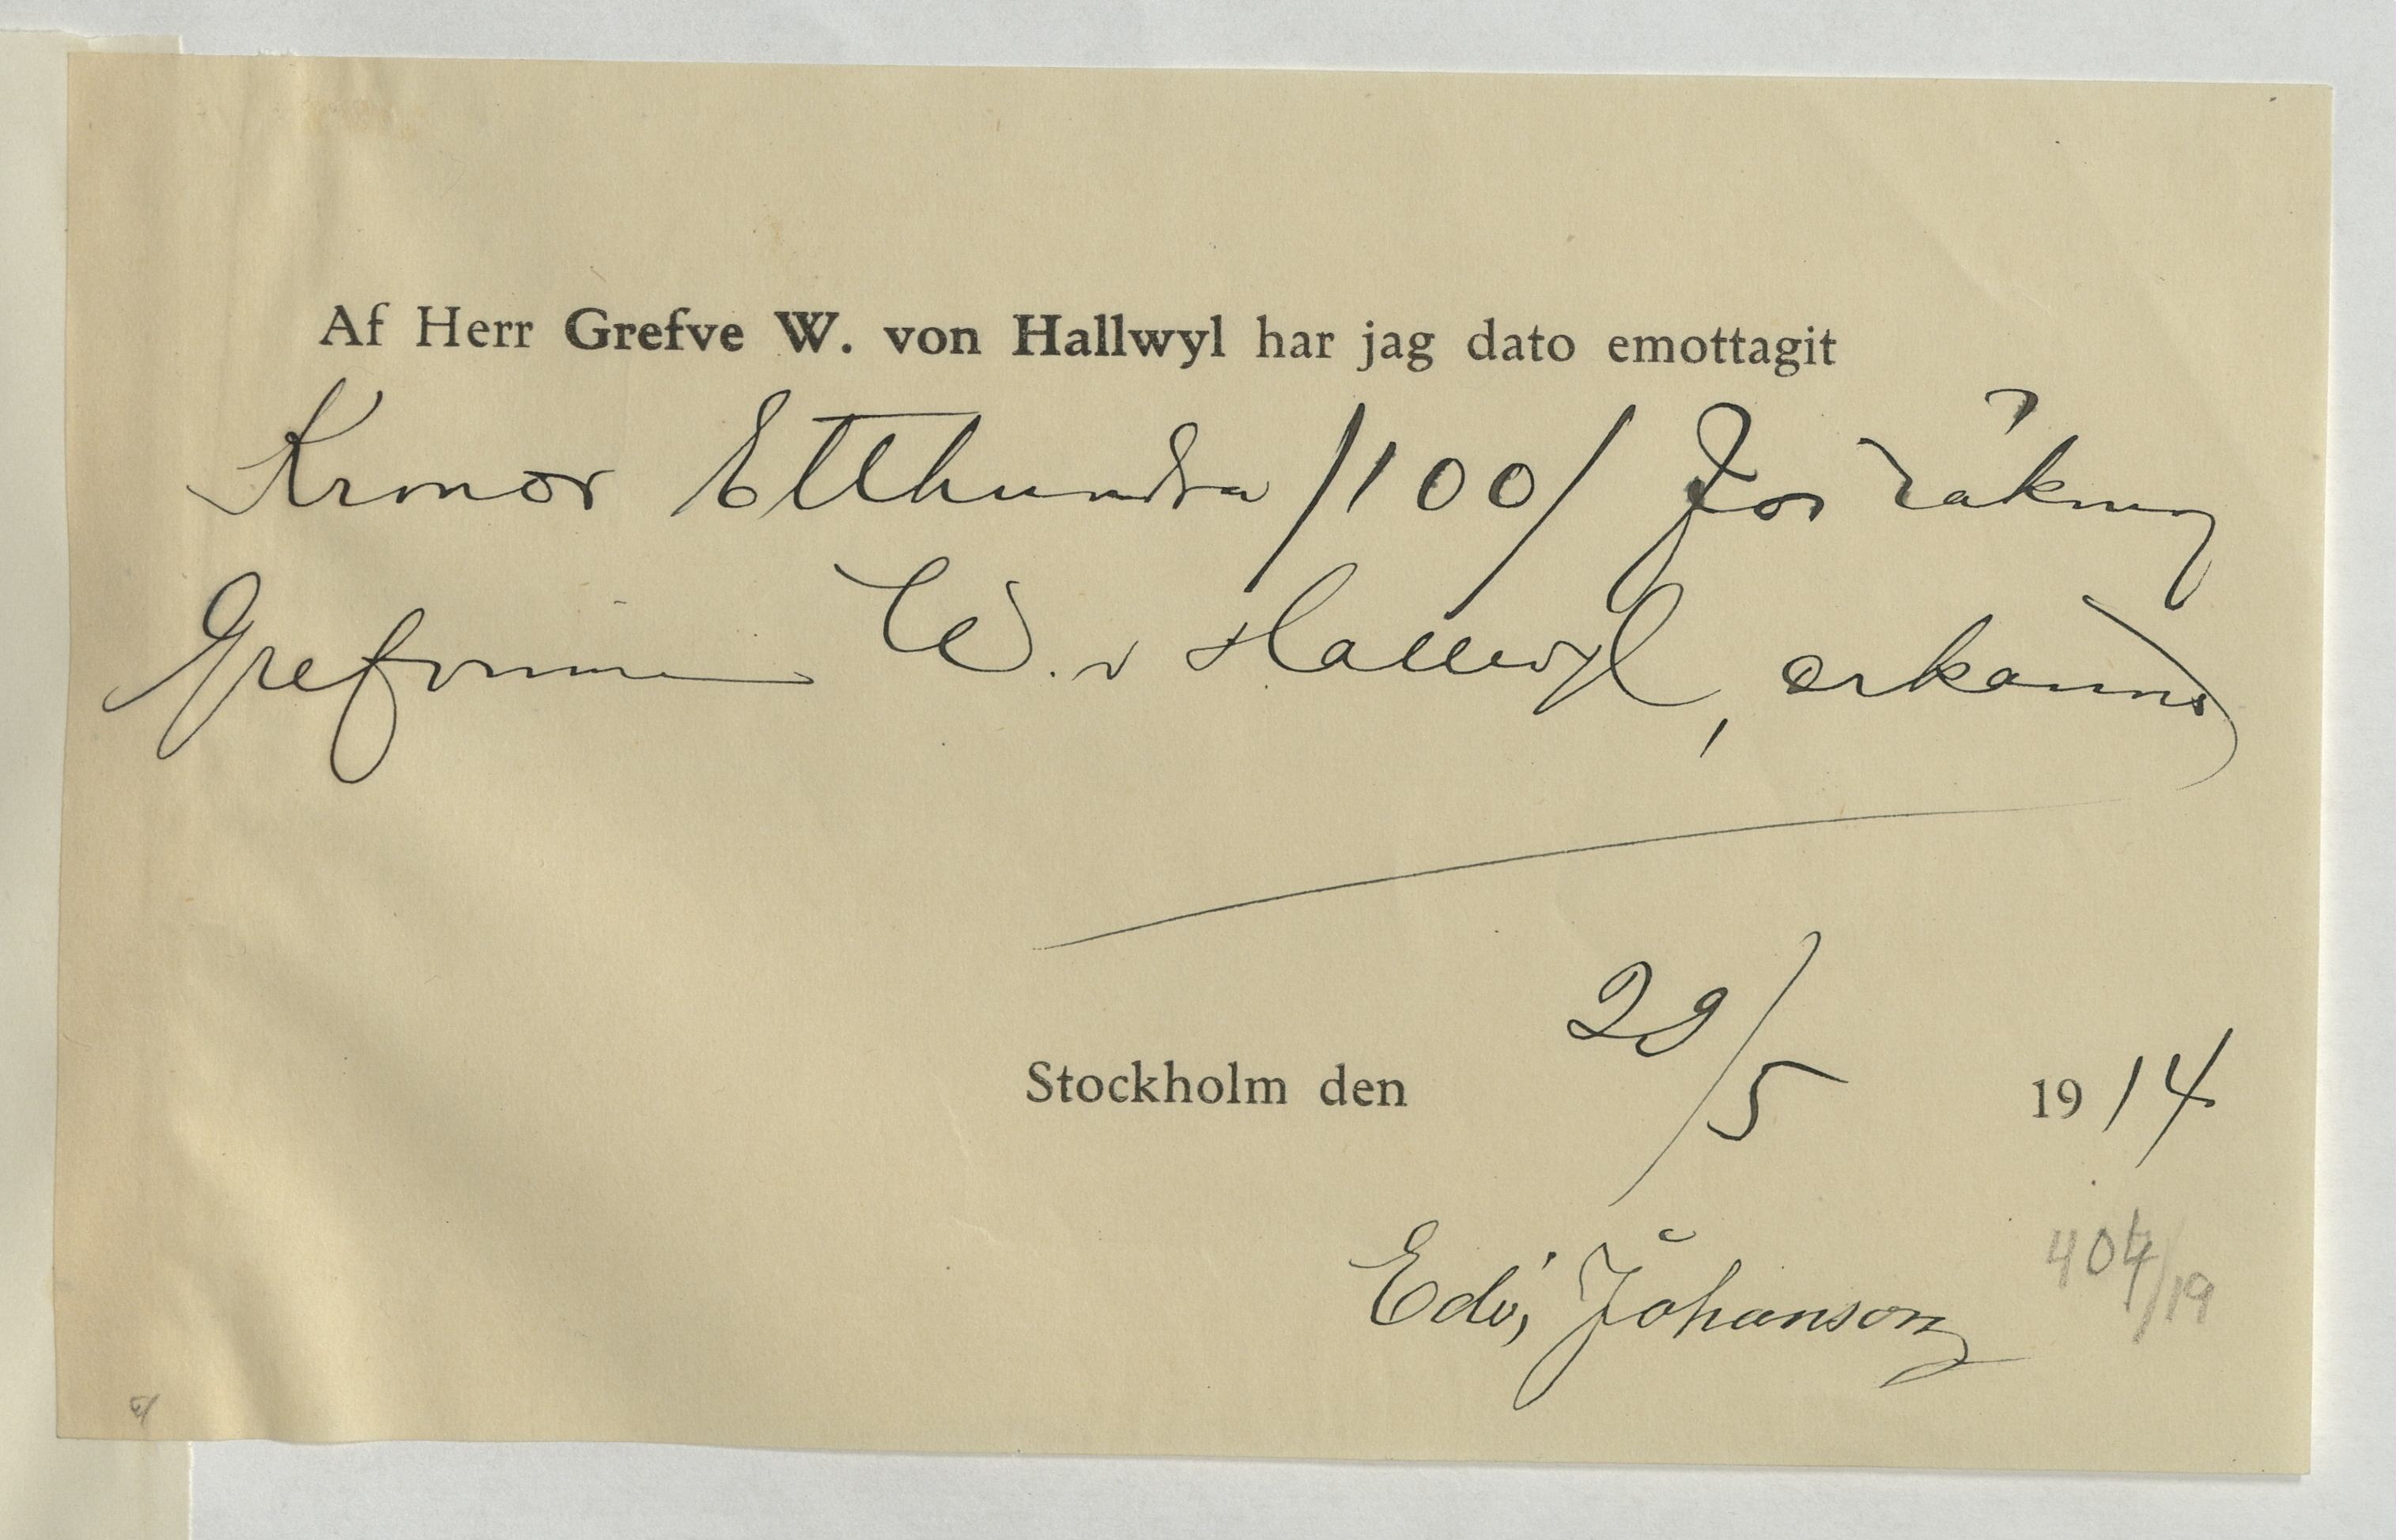 Af Herr Grefve W. von Hallwyl har jag dato emottagit
Kronor Etthundra /100/ för räkning
Grefvinnan W. v Hallwyl, erkännes
Stockholm den 29/5 1914
Edv; Johanson
404/19